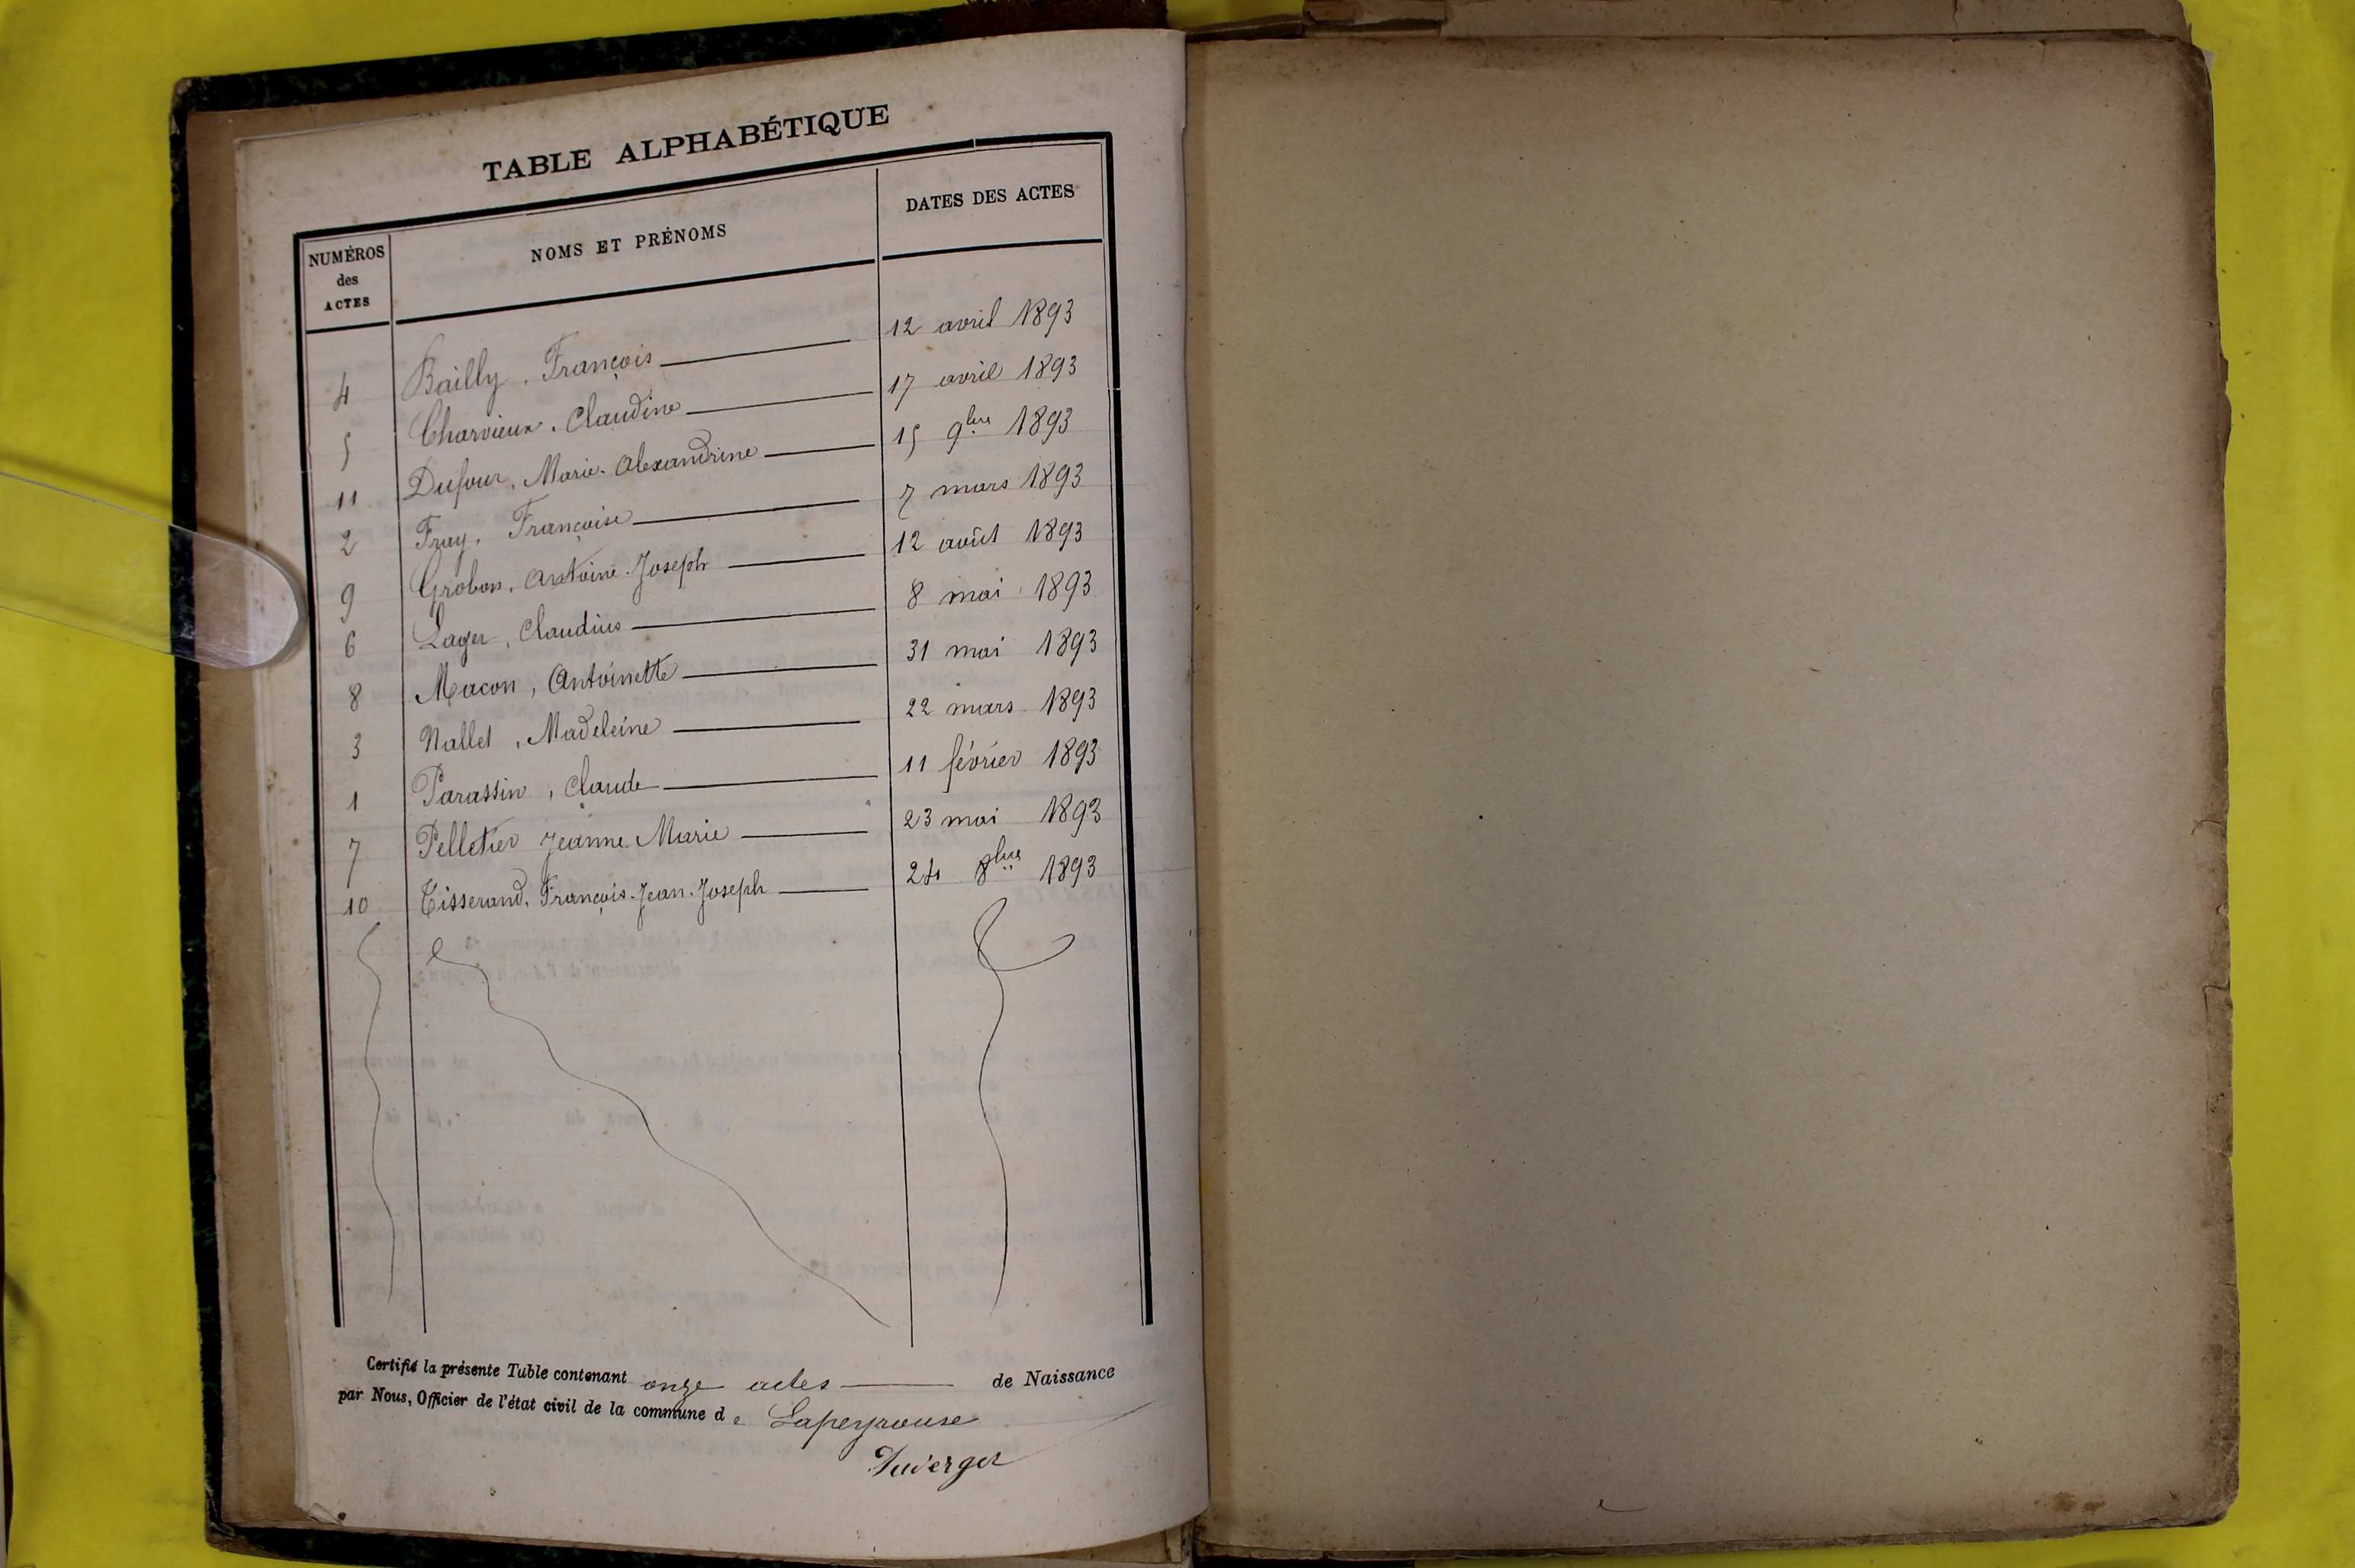 TABLE ALPHABÉTIQUE
NUMÉROS des ACTES NOMS ET PRÉNOMS DATES DES ACTES
4 Bailly, François 12 avril 1893
5 Charvieux, Claudine 17 avril 1893
11 Dufour, Marie-Alexandrine 15 9bre 1893
2 Fray, Françoise 7 mars 1893
9 Grobon, Antoine-Joseph 12 août 1893
6 Lager, Claudius 8 mai 1893
8 Macon, Antoinette 31 mai 1893
3 Nallet, Madeleine 22 mars 1893
1 Parassin, Claude 11 février 1893
7 Pelletier Jeanne Marie 23 mai 1893
10 Tisserand, François-Jean-Joseph 24 8bre 1893
Certifié la présente Table contenant onze actes de Naissance
par Nous, Officier de l'état civil de la commune de Lapeyrouse
Duverger